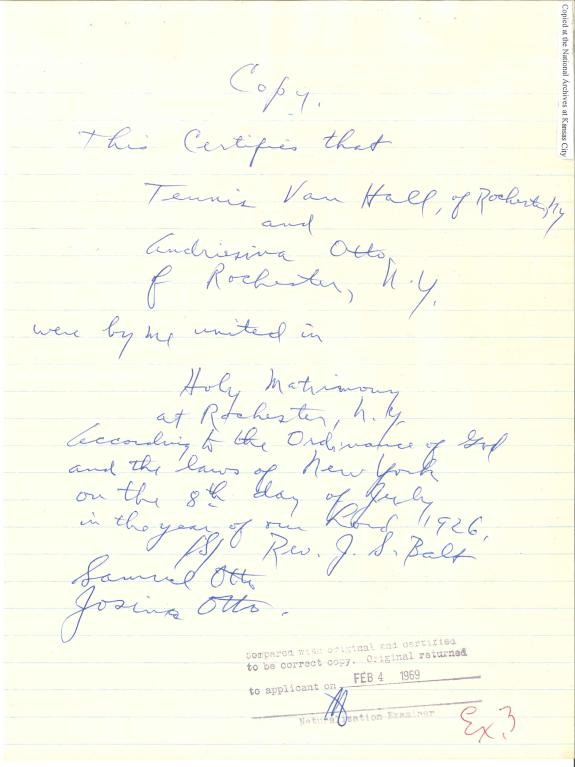 Copied at the National Archives at Kansas City
Copy.
This Certifies that
Tennis Van Hall, of Rochester, NY
and
Andriesina Otto,
of Rochester, N.Y.
were by me united in
Holy Matrimony
at Rochester, N.Y.
According to the Ordinance of God
and the laws of New York
on the 8th day of July
in the year of our Lord 1926.
/S/ Rev. J. S. Balt
Samuel Otto
Josina Otto.
Compared with original and certified
to be correct copy. Original returned
to applicant on FEB 4 1969
Naturalization Examiner
Ex. 3